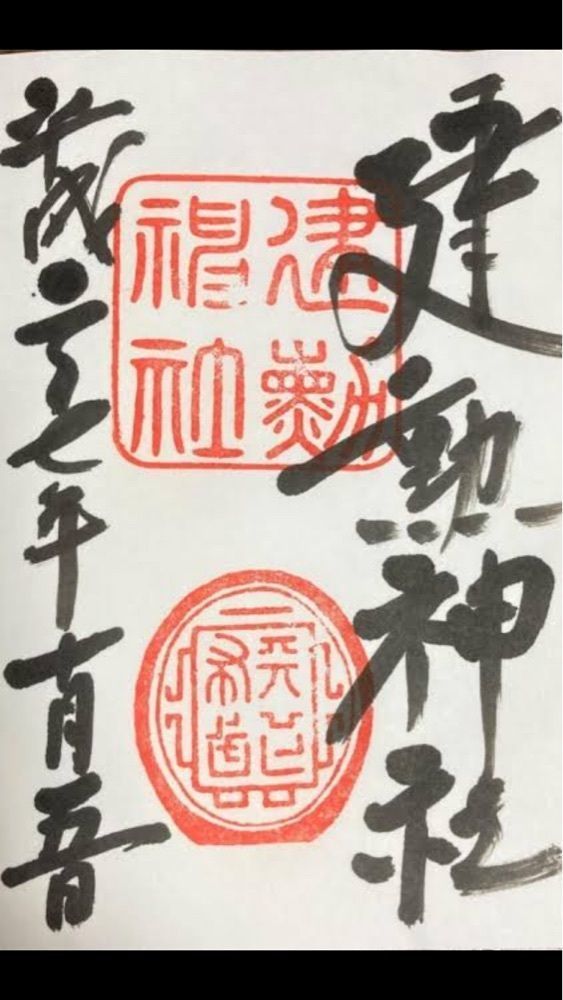 建勲神社
建勲
神社
天下
布武
平成二十七年十月五日